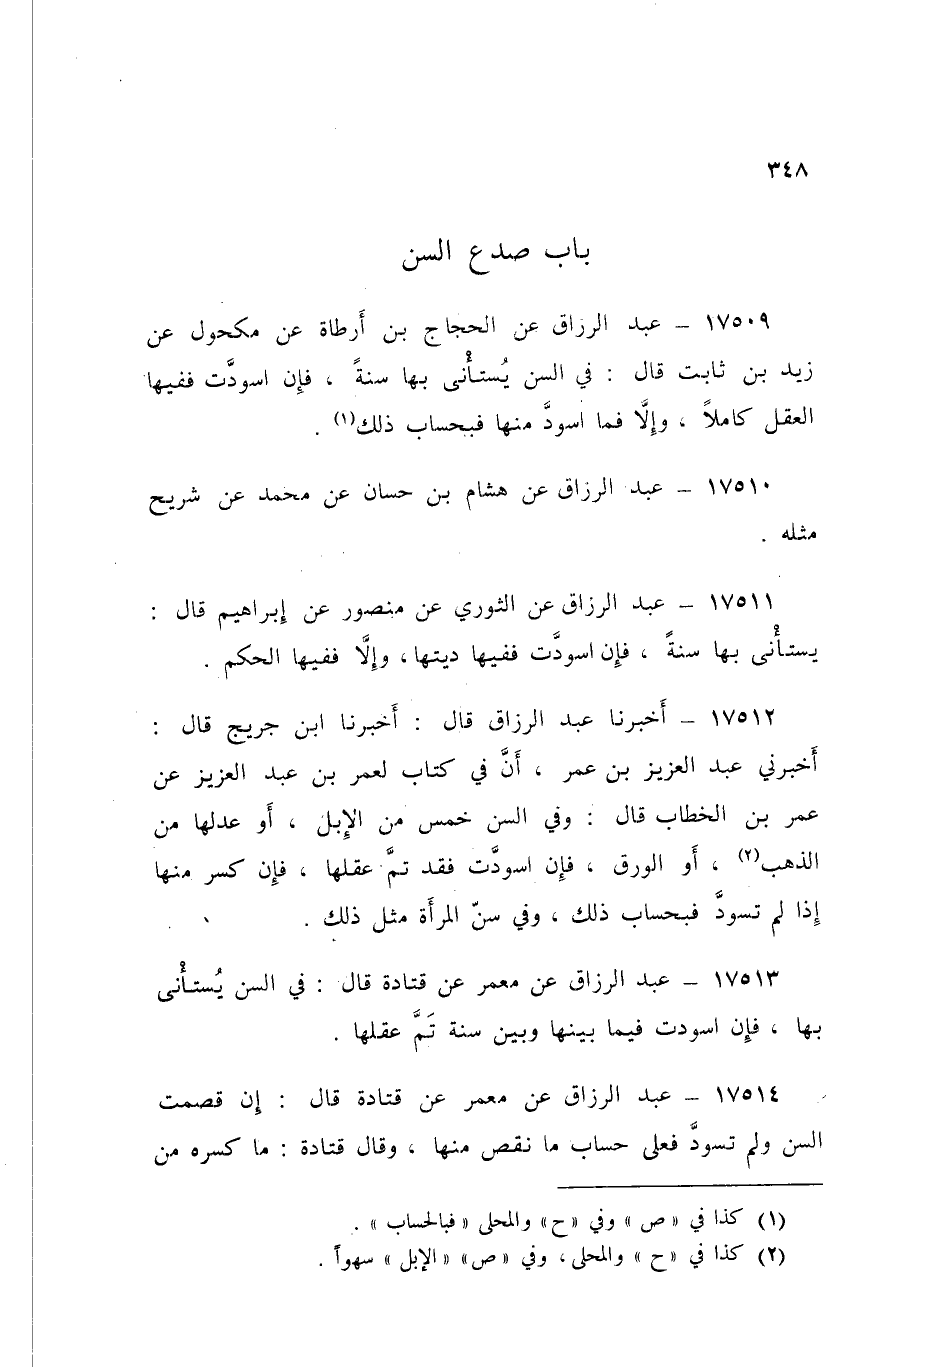 ٣٤٨
باب صدع السن
١٧٥٠٩ – عبد الرزاق عن الحجاج بن أرطاة عن مكحول عن
زيد بن ثابت قال : في السن يُستأْنى بها سنةً ، فإن اسودَّت ففيها
العقل كاملاً ، وإلَّا فما اسودَّ منها فبحساب ذلك(١) .
١٧٥١٠ – عبد الرزاق عن هشام بن حسان عن محمد عن شريح
مثله .
١٧٥١١ – عبد الرزاق عن الثوري عن منصور عن إبراهيم قال :
يستأْنى بها سنةً ، فإن اسودَّت ففيها ديتها ، وإلَّا ففيها الحكم .
١٧٥١٢ – أَخبرنا عبد الرزاق قال : أَخبرنا ابن جريج قال :
أَخبرني عبد العزيز بن عمر ، أَنَّ في كتاب لعمر بن عبد العزيز عن
عمر بن الخطاب قال : وفي السن خمس من الإبل ، أَو عدلها من
الذهب(٢) ، أَو الورق ، فإن اسودَّت فقد تمَّ عقلها ، فإن كسر منها
إذا لم تسودَّ فبحساب ذلك ، وفي سنّ المرأَة مثل ذلك .
١٧٥١٣ – عبد الرزاق عن معمر عن قتادة قال : في السن يُستأْنى
بها ، فإن اسودت فيما بينها وبين سنة تَمَّ عقلها .
١٧٥١٤ – عبد الرزاق عن معمر عن قتادة قال : إن قصمت
السن ولم تسودَّ فعلى حساب ما نقص منها ، وقال قتادة : ما كسره من
(١) كذا في « ص » وفي « ح » والمحلى « فبالحساب » .
(٢) كذا في « ح » والمحلى ، وفي « ص » « الإبل » سهواً .